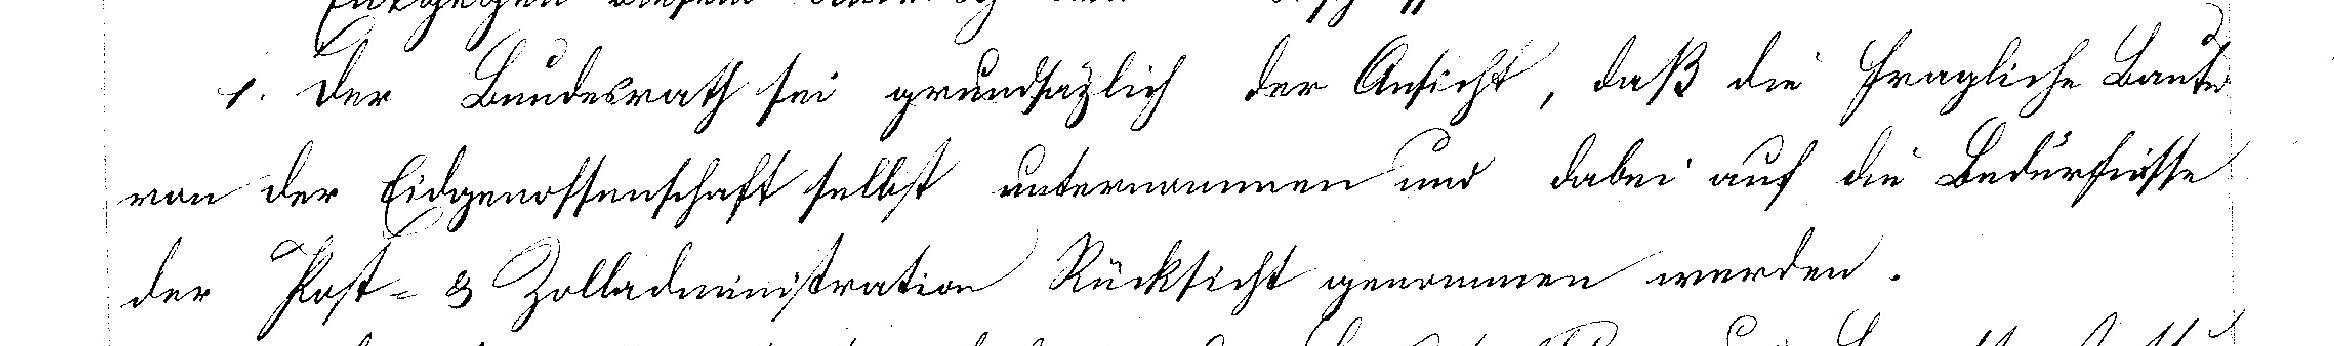 1. Der Bundesrath sei grundsäzlich der Ansicht, daß die fragliche Baute
von der Eidgenossenschaft selbst unternommen und dabei auf die Bedürfnisse
der Post- & Zolladministration Rücksicht genommen werden.